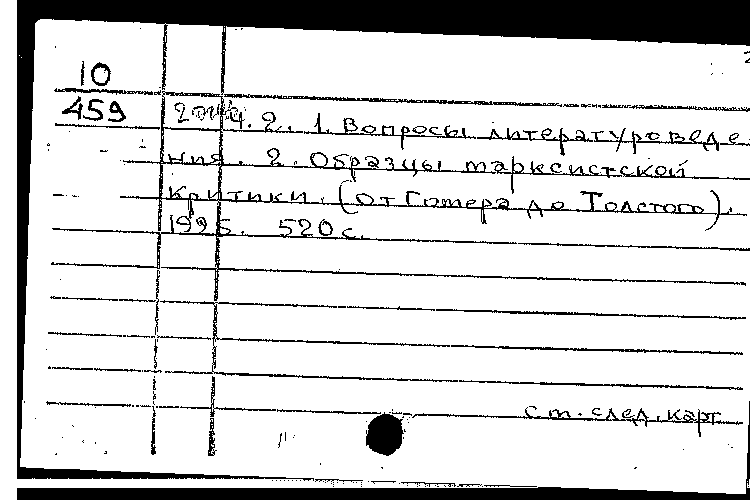 2
10
459
ч. 2. 1. Вопросы литературоведе
ния. 2. Образцы марксистской
критики. (от Гомера до Толстого).
1995. 520 с.
с т. след. карт